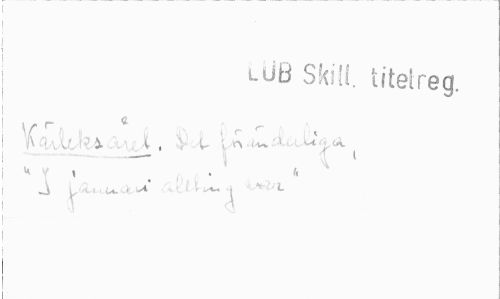 LUB Skill. titelreg.
Kärleksåret. Det föränderliga,
"I januari allting var"